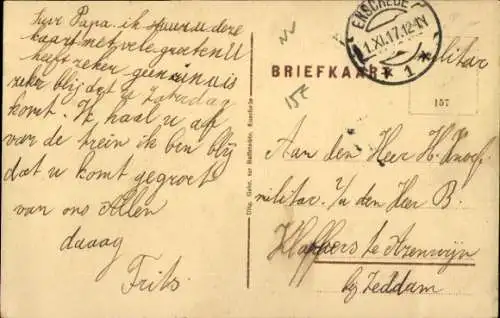 Lieve Papa ik stuur u deze
kaart met vele groeten U
heeft zeker geen in uis
zeker blij dat u Zaterdag
komt. Ik haal u af
van de trein ik ben blij
dat u komt gegroet
van ons Allen
daaag
Frits
Uitg. Gebr. ter Enschede
ENSCHEDE
1.XI.17.12-1N
1
Militair
BRIEFKAART
157
15c
Aan den Heer H.
militair. I/d den Heer B.
te Azewijn
by Zeddam